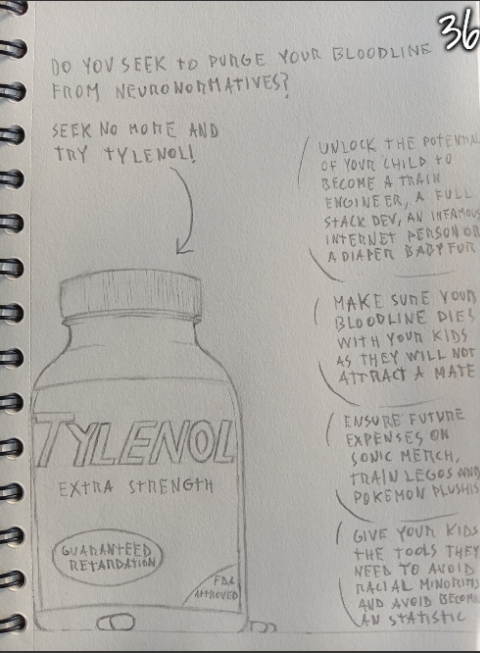 36
DO YOU SEEK TO PURGE YOUR BLOODLINE
FROM NEURONORMATIVES?
SEEK NO MORE AND
TRY TYLENOL!
UNLOCK THE POTENTIAL
OF YOUR CHILD TO
BECOME A TRAIN
ENGINEER, A FULL
STACK DEV, AN INFAMOUS
INTERNET PERSON OR
A DIAPER BABYFUR
MAKE SURE YOUR
BLOODLINE DIES
WITH YOUR KIDS
AS THEY WILL NOT
ATTRACT A MATE
ENSURE FUTURE
EXPENSES ON
SONIC MERCH,
TRAIN LEGOS AND
POKEMON PLUSHIS
GIVE YOUR KIDS
THE TOOLS THEY
NEED TO AVOID
RACIAL MINORITIS
AND AVOID BECOM
AN STATISTIC
TYLENOL
EXTRA STRENGTH
GUARANTEED
RETARDATION
FDA
APPROVED